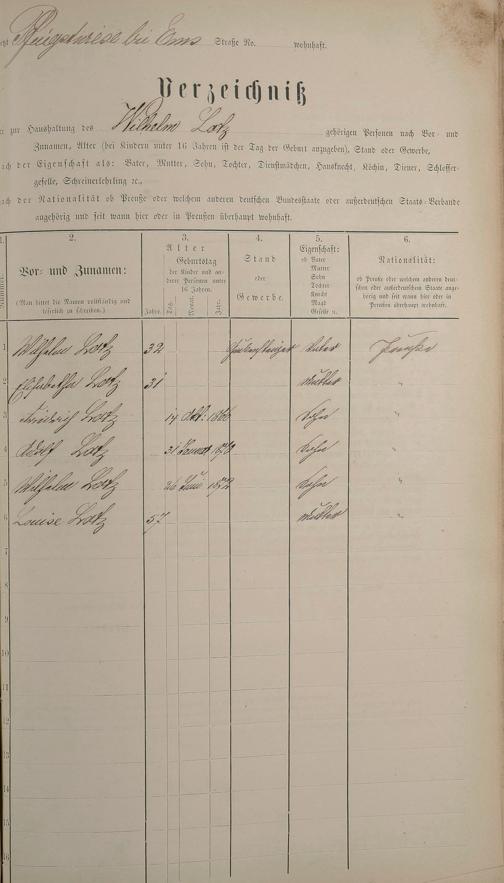 bei Ems Straße No. wohnhaft.
Verzeichniß
zur Haushaltung des Wilhelm Lotz gehörigen Personen nach Vor- und
Zunamen, Alter (bei Kindern unter 16 Jahren ist der Tag der Geburt anzugeben), Stand oder Gewerbe,
nach der Eigenschaft als: Vater, Mutter, Sohn, Tochter, Dienstmädchen, Hausknecht, Köchin, Diener, Schlosser-
geselle, Schreinerlehrling ec.,
nach der Nationalität ob Preuße oder welchem anderen deutschen Bundesstaate oder außerdeutschen Staats-Verbande
angehörig und seit wann hier oder in Preußen überhaupt wohnhaft.
1. 2. 3. 4. 5. 6.
Nummer.
Vor- und Zunamen:
(Man bittet die Namen vollständig und
leserlich zu schreiben.)
Alter
Geburtstag
der Kinder und an-
derer Personen unter
16 Jahren.
Jahre. Tag. Monat. Jahr.
Stand
oder
Gewerbe.
Eigenschaft:
ob Vater
Mutter
Sohn
Tochter
Knecht
Magd
Geselle u.
Nationalität:
ob Preuße oder welchem anderen deut-
schen oder außerdeutschen Staate ange-
hörig und seit wann hier oder in
Preußen überhaupt wohnhaft.
1 Wilhelm Lotz 32 Vater Preuße
2 Elisabetha Lotz 31 Mutter "
3 Friedrich Lotz 14 Okt: 1866 Sohn "
4 Adolf Lotz 31 Januar 1870 Sohn "
5 Wilhelm Lotz 26 Juni 1872 Sohn "
6 Louise Lotz 57 Mutter "
7
8
9
10
11
12
13
14
15
16